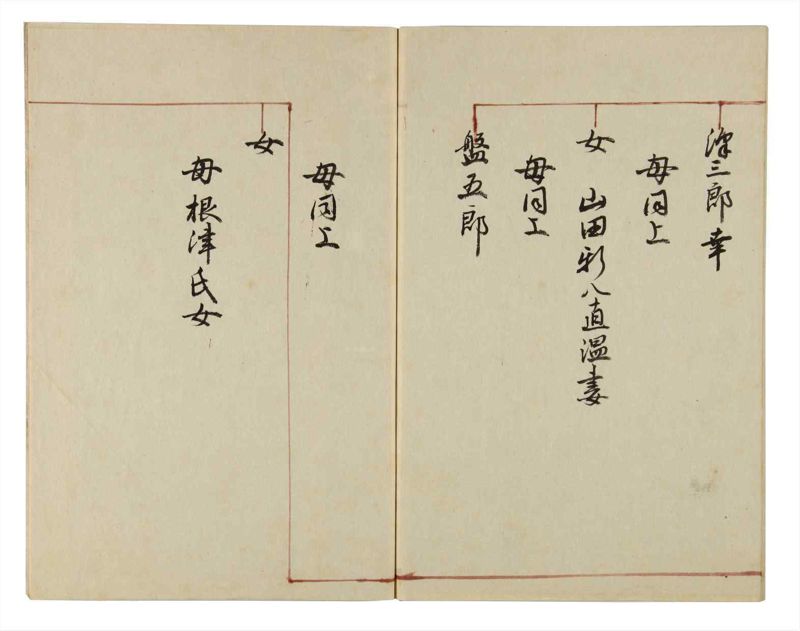 三郎幸
母同上
女 山田新八直温妻
母同上
盤五郎
母同上
女
母根津氏女